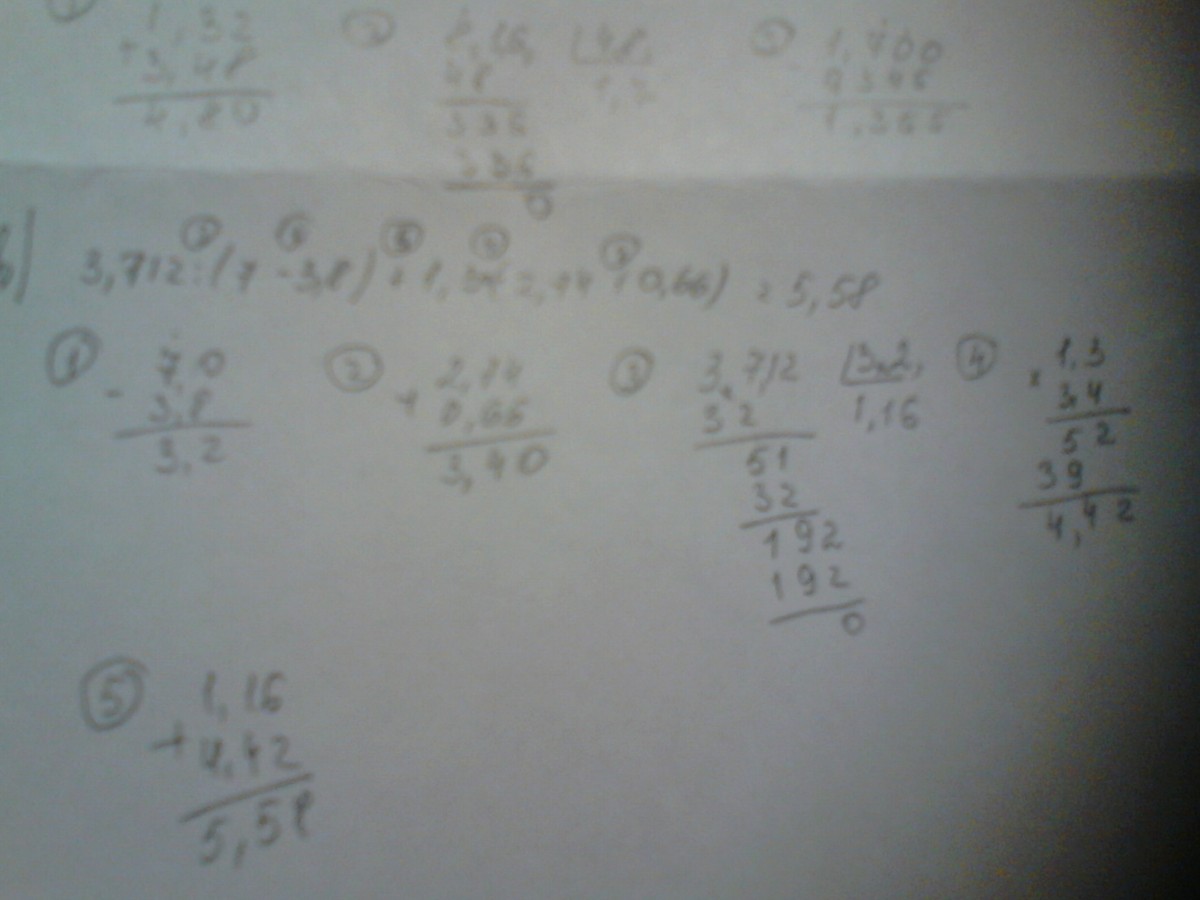 1,32
+ 3,48
4,80
8,16, | 48,
48 1,7
336
336
0
1,700
0 3
1,3
в) 3,712 : (7 - 3,8) + 1,3 2,74 + 0,66) = 5,58
① 7,0
- 3,8
3,2
② 2,74
+ 0,66
3,40
③ 3,712 | 3,2,
32 1,16
51
32
192
192
0
④ 1,3
x 3,4
52
39
4,42
⑤ 1,16
+ 4,42
5,58